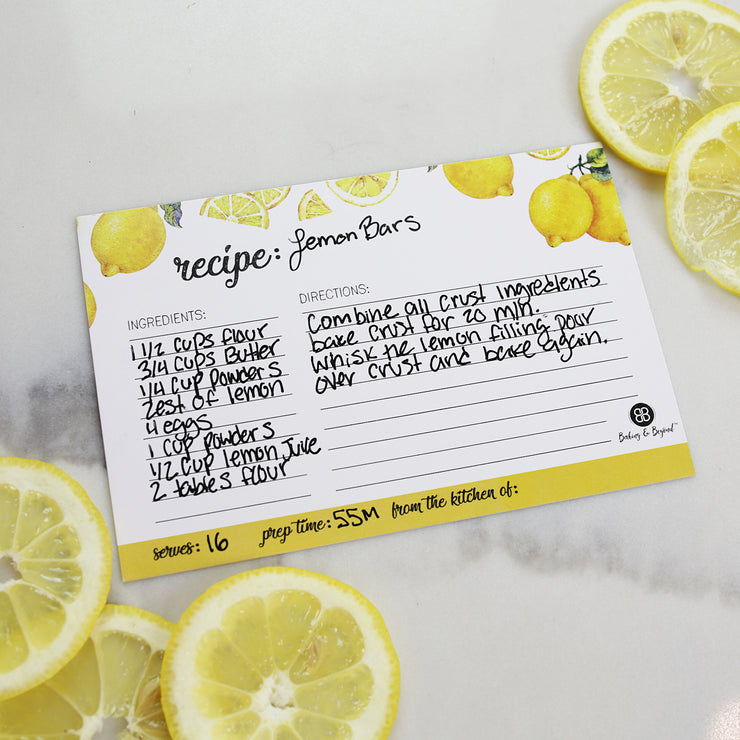 recipe: Lemon Bars
INGREDIENTS:
1 1/2 cups flour
3/4 cups Butter
1/4 cup powders
zest of lemon
4 eggs
1 cup powders
1/2 cup lemon Juice
2 tables flour
DIRECTIONS:
Combine all crust ingredients
bake crust for 20 min.
Whisk the lemon filling pour
over crust and bake again.
BB
Baking & Beyond™
serves: 16 prep time: 55M from the kitchen of: